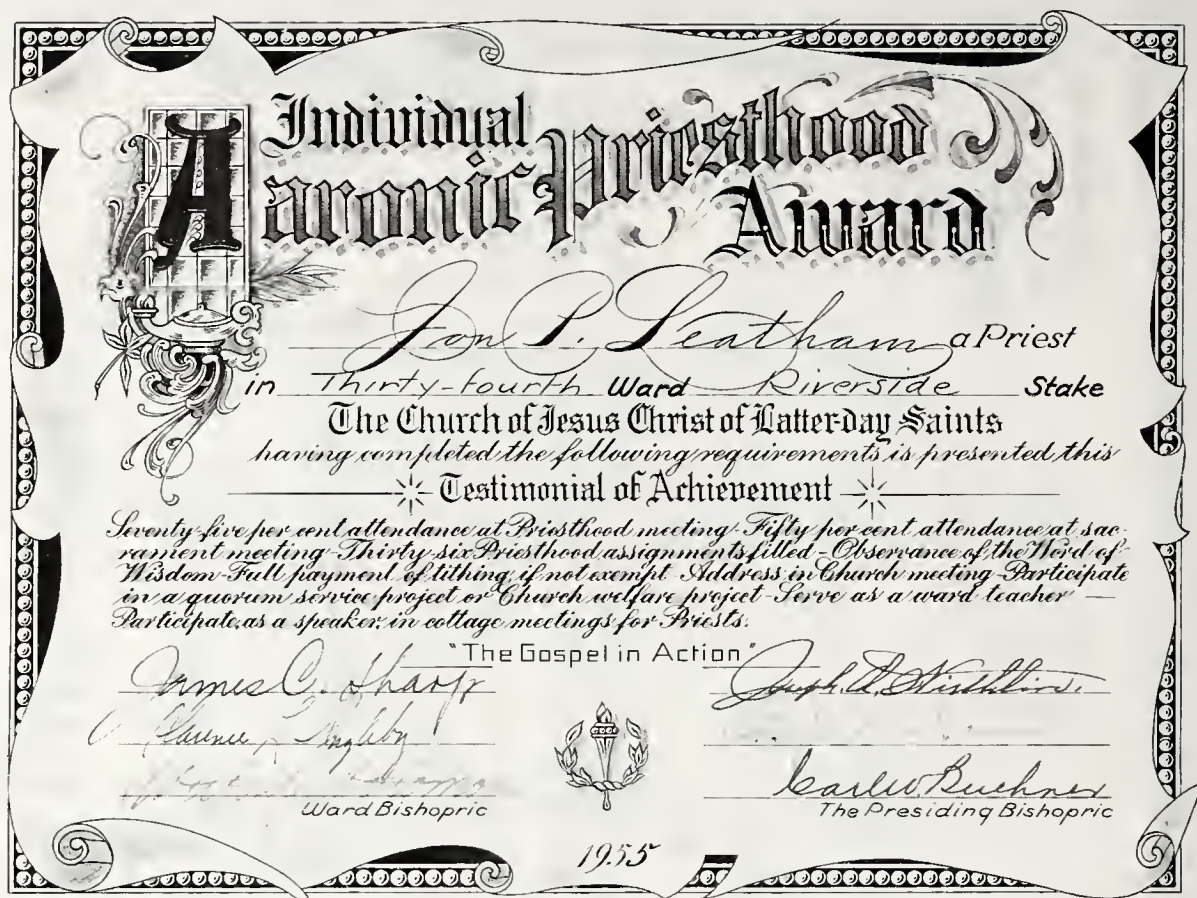 Individual
Aaronic Priesthood
Award
Jon P. Leatham a Priest
in Thirty-fourth Ward Riverside Stake
The Church of Jesus Christ of Latter-day Saints
having completed the following requirements is presented this
Testimonial of Achievement
Seventy-five per cent attendance at Priesthood meeting-Fifty per cent attendance at sac-
rament meeting-Thirty-six Priesthood assignments filled-Observance of the Word of
Wisdom-Full payment of tithing, if not exempt-Address in Church meeting-Participate
in a quorum service project or Church welfare project-Serve as a ward teacher —
Participate as a speaker in cottage meetings for Priests.
"The Gospel in Action"
James C. Sharp
Joseph L. Wirthlin.
Clarence
Carl W. Buehner
Ward Bishopric
The Presiding Bishopric
1955